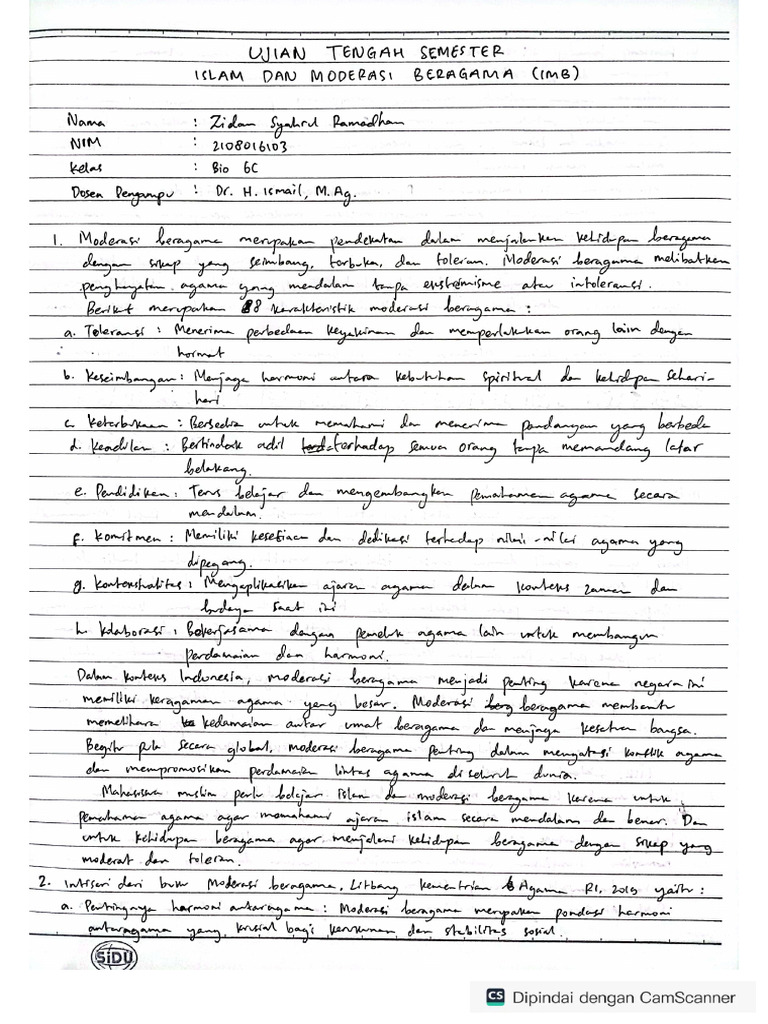 UJIAN TENGAH SEMESTER
ISLAM DAN MODERASI BERAGAMA (IMB)
Nama : Zidan Syahrul Ramadhan
NIM : 2108016103
Kelas : Bio 6C
Dosen Pengampu : Dr. H. Ismail, M.Ag.
1. Moderasi beragama merupakan pendekatan dalam menjalankan kehidupan beragama
dengan sikap yang seimbang, terbuka, dan toleran. Moderasi beragama melibatkan
penghayatan agama yang mendalam tanpa ekstremisme atau intoleransi.
Berikut merupakan 8 karakteristik moderasi beragama :
a. Toleransi : Menerima perbedaan keyakinan dan memperlakukan orang lain dengan
hormat
b. Keseimbangan : Menjaga harmoni antara kebutuhan spiritual dan kehidupan sehari-
hari
c. Keterbukaan : Bersedia untuk memahami dan menerima pandangan yang berbeda
d. Keadilan : Bertindak adil terhadap semua orang tanpa memandang latar
belakang.
e. Pendidikan : Terus belajar dan mengembangkan pemahaman agama secara
mendalam.
f. Komitmen : Memiliki kesetiaan dan dedikasi terhadap nilai-nilai agama yang
dipegang.
g. Kontekstualitas : Mengaplikasikan ajaran agama dalam konteks zaman dan
budaya saat ini
h. Kolaborasi : Bekerjasama dengan pemeluk agama lain untuk membangun
perdamaian dan harmoni.
Dalam konteks Indonesia, moderasi beragama menjadi penting karena negara ini
memiliki keragaman agama yang besar. Moderasi beragama membantu
memelihara kedamaian antar umat beragama dan menjaga kesatuan bangsa.
Begitu pula secara global, moderasi beragama penting dalam mengatasi konflik agama
dan mempromosikan perdamaian lintas agama di seluruh dunia.
Mahasiswa muslim perlu belajar islam dan moderasi beragama karena untuk
pemahaman agama agar memahami ajaran islam secara mendalam dan benar. Dan
untuk kehidupan beragama agar menjalani kehidupan beragama dengan sikap yang
moderat dan toleran.
2. Intisari dari buku Moderasi beragama, Litbang Kementrian Agama RI, 2019 yaitu :
a. Pentingnya harmoni antaragama : Moderasi beragama merupakan pondasi harmoni
antaragama yang krusial bagi kerukunan dan stabilitas sosial.
SiDU
CS Dipindai dengan CamScanner